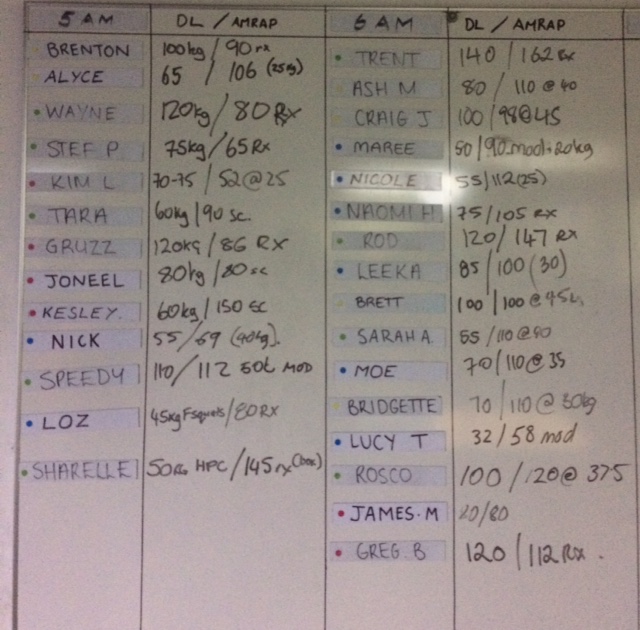 5 AM DL / AMRAP
BRENTON 100kg / 90 rx
ALYCE 65 / 106 (25kg)
WAYNE 120kg / 80 Rx
STEF P 75kg / 65 Rx
KIM L 70-75 / 52 @ 25
TARA 60kg / 90 sc.
GRUZZ 120kg / 86 RX
JONEEL 80kg / 80 sc
KESLEY. 60kg / 150 SC
NICK 55 / 59 (40kg).
SPEEDY 110 / 112 MOD
LOZ 45kg Fsquats / 80 RX
SHARELLE 50kg HPC / 145 rx (box)
6 AM DL / AMRAP
TRENT 140 / 162 Rx
ASH M 80 / 110 @ 40
CRAIG J 100 / 98 @ 45
MAREE 50 / 90 mod + 20kg
NICOLE 55 / 112 (25)
NAOMI H 75 / 105 RX
ROD 120 / 147 RX
LEEKA 85 / 100 (30)
BRETT 100 / 100 @
SARAH A. 55 / 110 @
MOE 70 / 110 @ 35
BRIDGETTE 70 / 110 @ 30kg
LUCY T 32 / 58 mod
ROSCO 100 / 120 @ 375
JAMES. M 20/80
GREG. B 120 / 112 Rx .